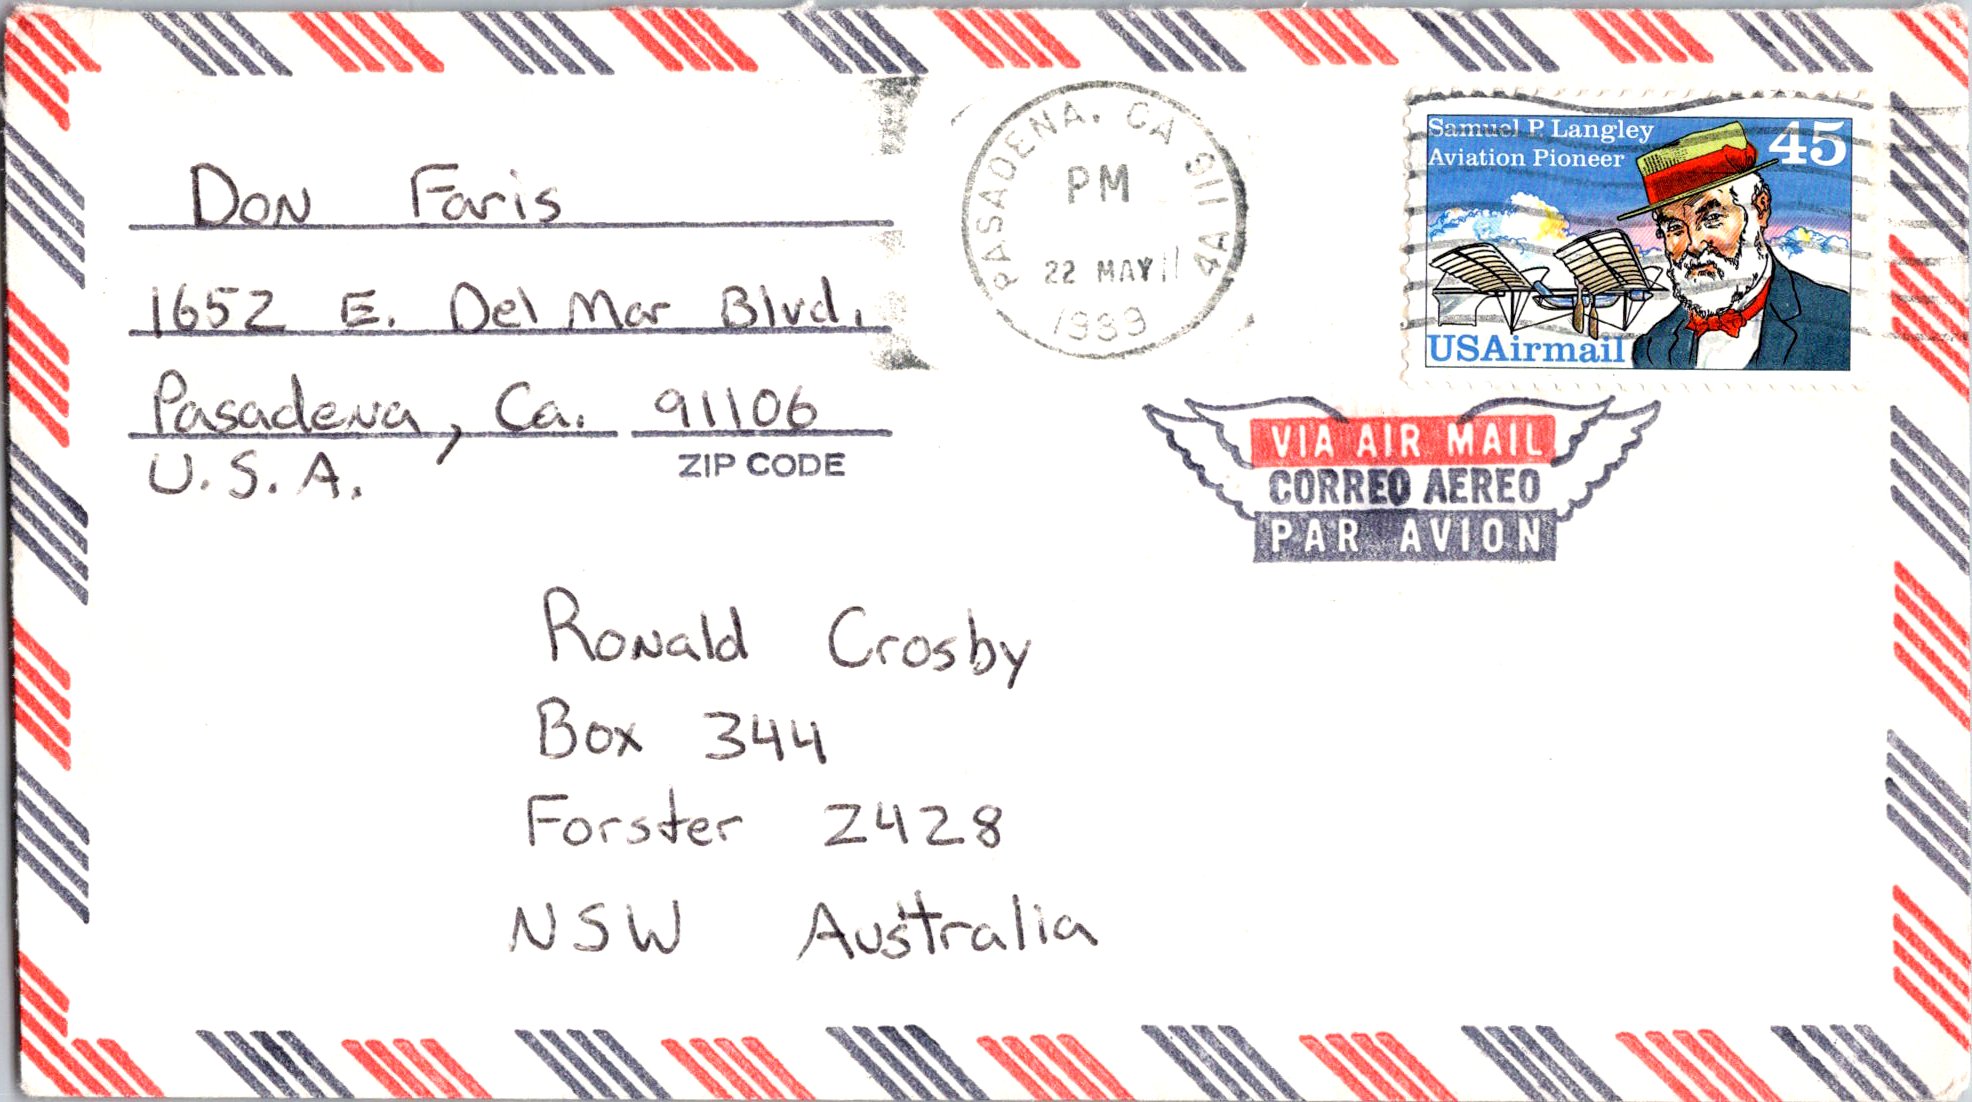 Don Faris
1652 E. Del Mar Blvd.
Pasadena, Ca. 91106
ZIP CODE
U.S.A.
PASADENA, CA 911 4A
PM
22 MAY
Samuel P. Langley
Aviation Pioneer
45
USAirmail
VIA AIR MAIL
CORREO AEREO
PAR AVION
Ronald Crosby
Box 344
Forster 2428
NSW Australia